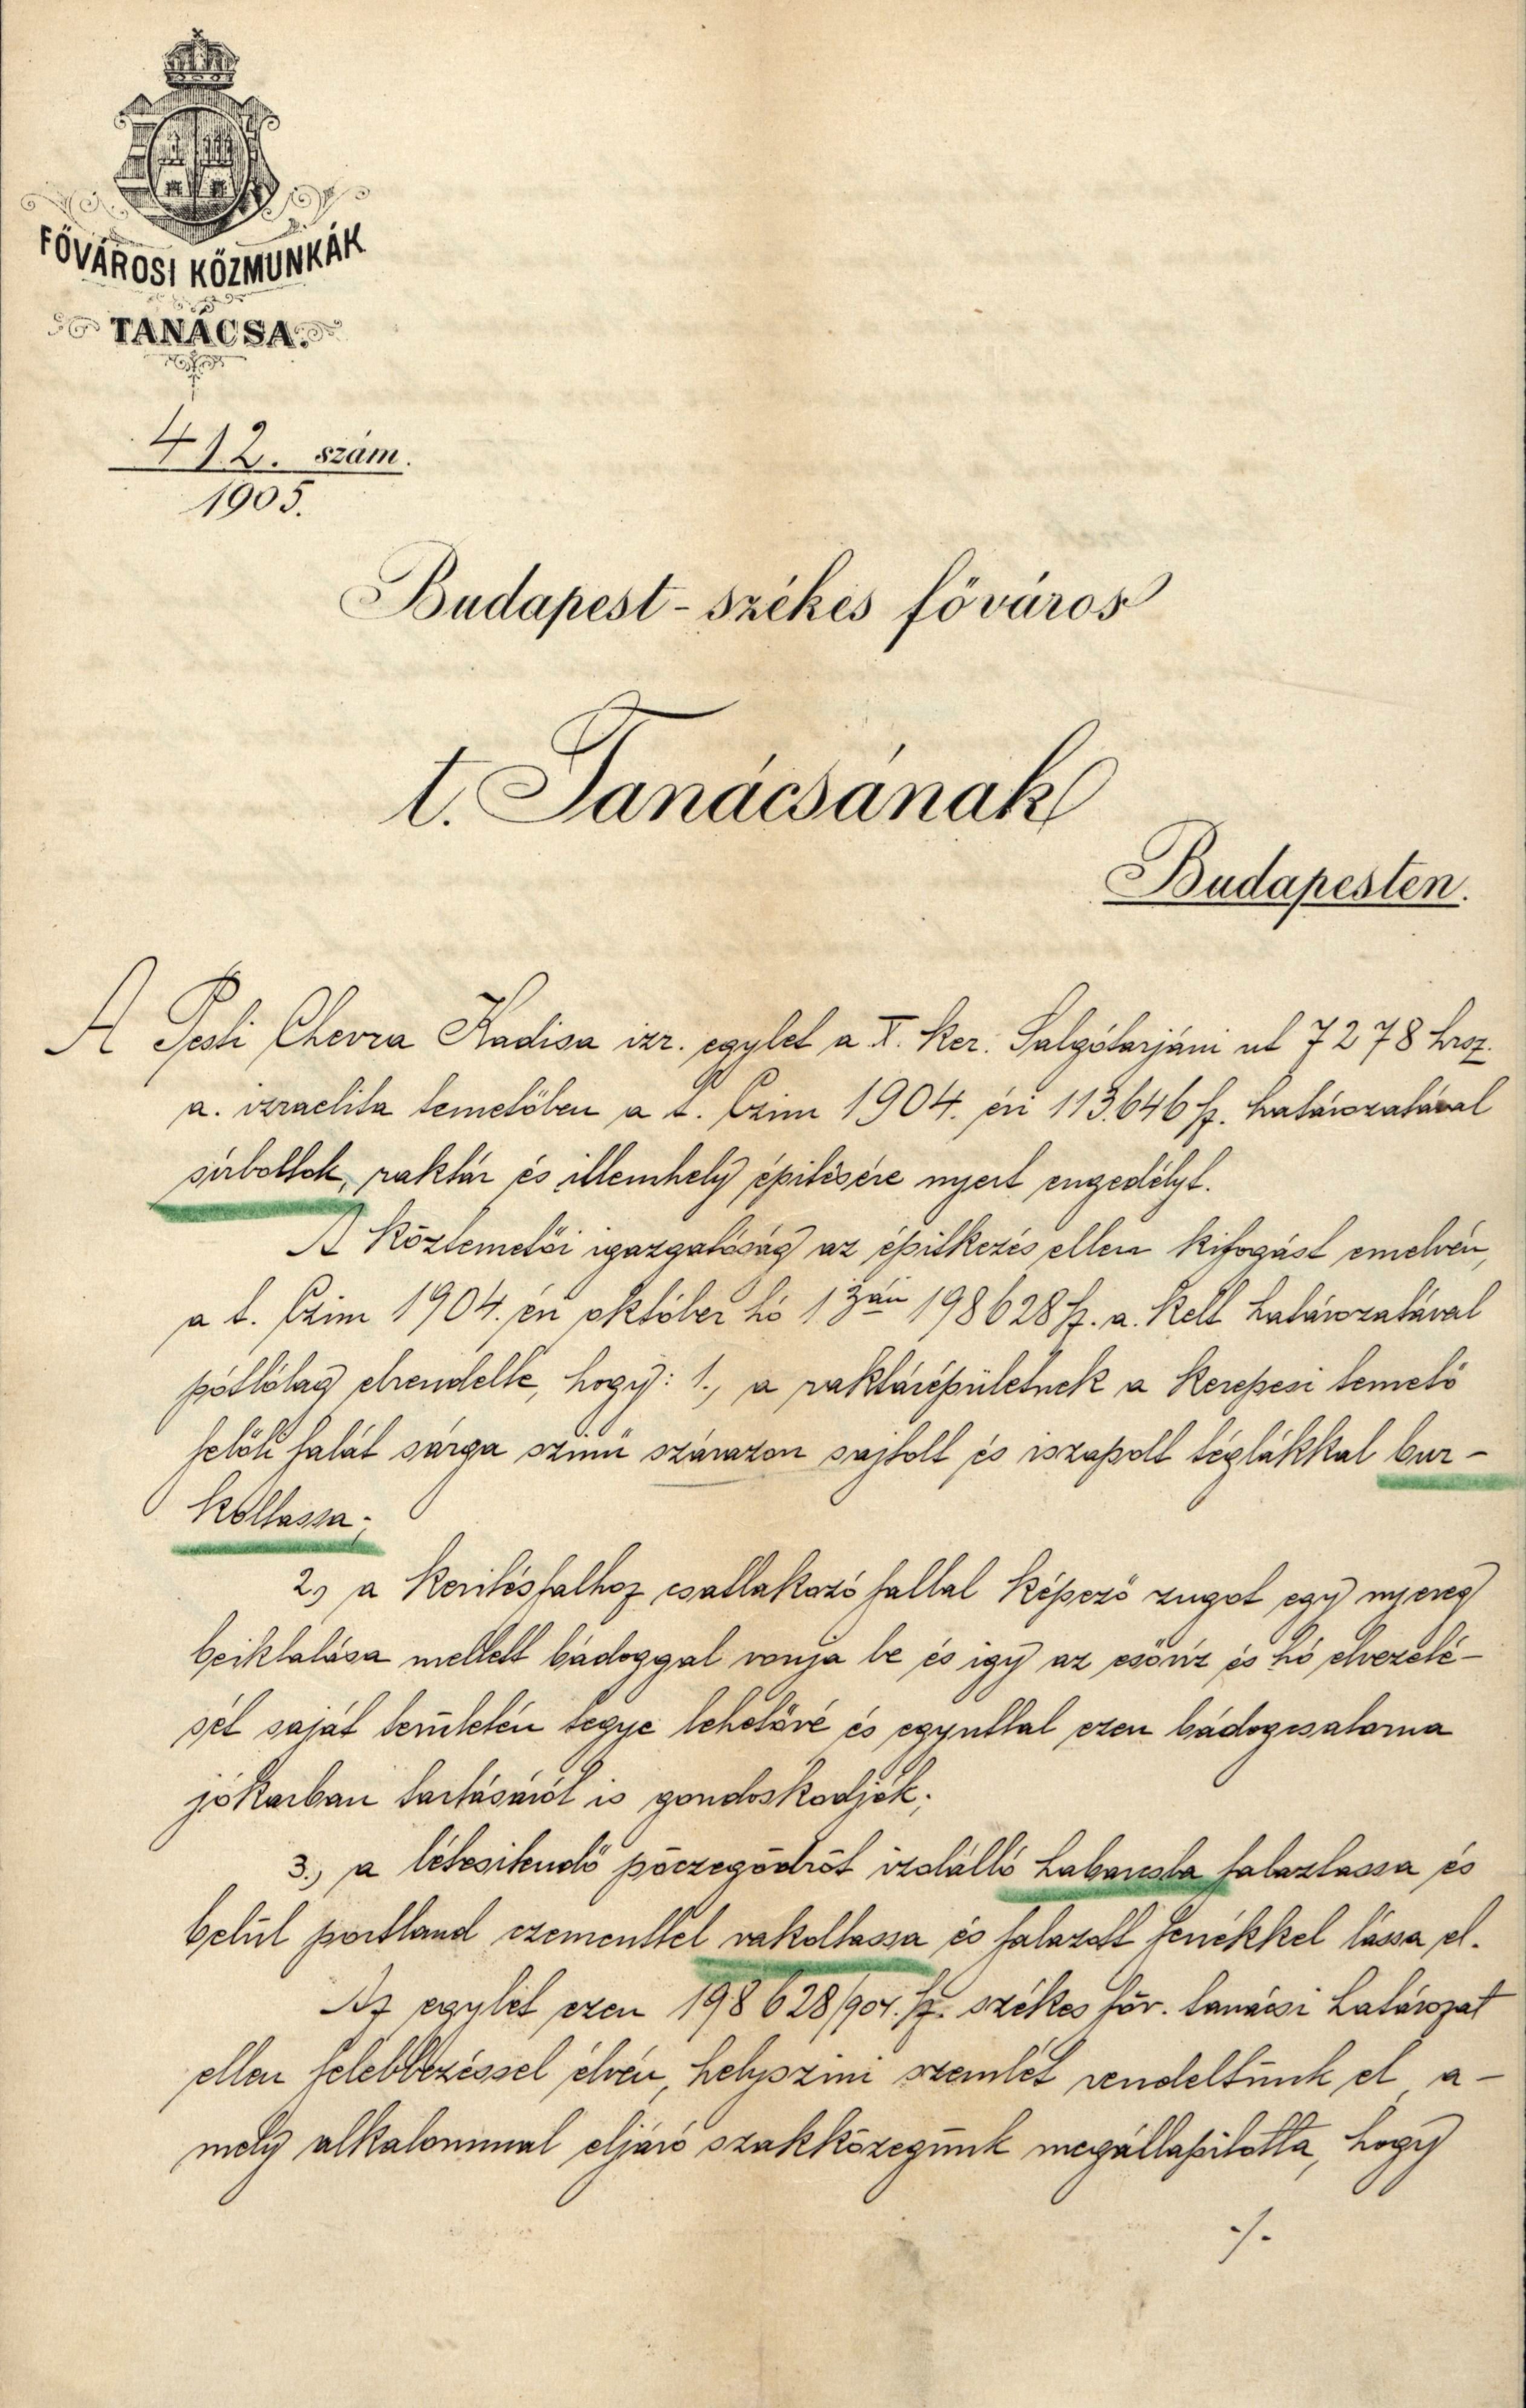 FŐVÁROSI KÖZMUNKÁK
TANÁCSA.
412. szám.
1905.
Budapest-székes főváros
t. Tanácsának
Budapesten.
A Pesti Chevra Kadisa izr. egylet a X. ker. Salgótarjáni ut 7278 hrsz.
a. izraelita temetőben a t. Czim 1904. évi 113.646 sz. határozatával
sirboltok, raktár és illemhely épitésére nyert engedélyt.
A köztemetői igazgatóság az épitkezés ellen kifogást emelvén,
a t. Czim 1904. évi október hó 13án 198628 sz. a. kelt határozatával
pótlólag elrendelte, hogy: 1., a raktárépületnek a kerepesi temető
felöli falát sárga szinü szárazon sajtolt és iszapolt téglákkal bur-
koltassa;
2., a keritésfalhoz csatlakozó fallal képező zugot egy nyereg
beiktatása mellett bádoggal vonja be és igy az esőviz és hó elvezeté-
sét saját területén tegye lehetővé és egyuttal ezen bádogcsatorna
jókarban tartásáról is gondoskodjék;
3., a létesitendő pöczegödröt izoláltó habarcsba falaztassa és
belül portland czementtel vakoltassa és falazott fenékkel lássa el.
Az egylet ezen 198628/904. sz. székes főv. tanácsi határozat
ellen felebbezéssel élvén, helyszini szemlét rendeltünk el, a-
mely alkalommal eljáró szakközegünk megállapitotta, hogy
./.